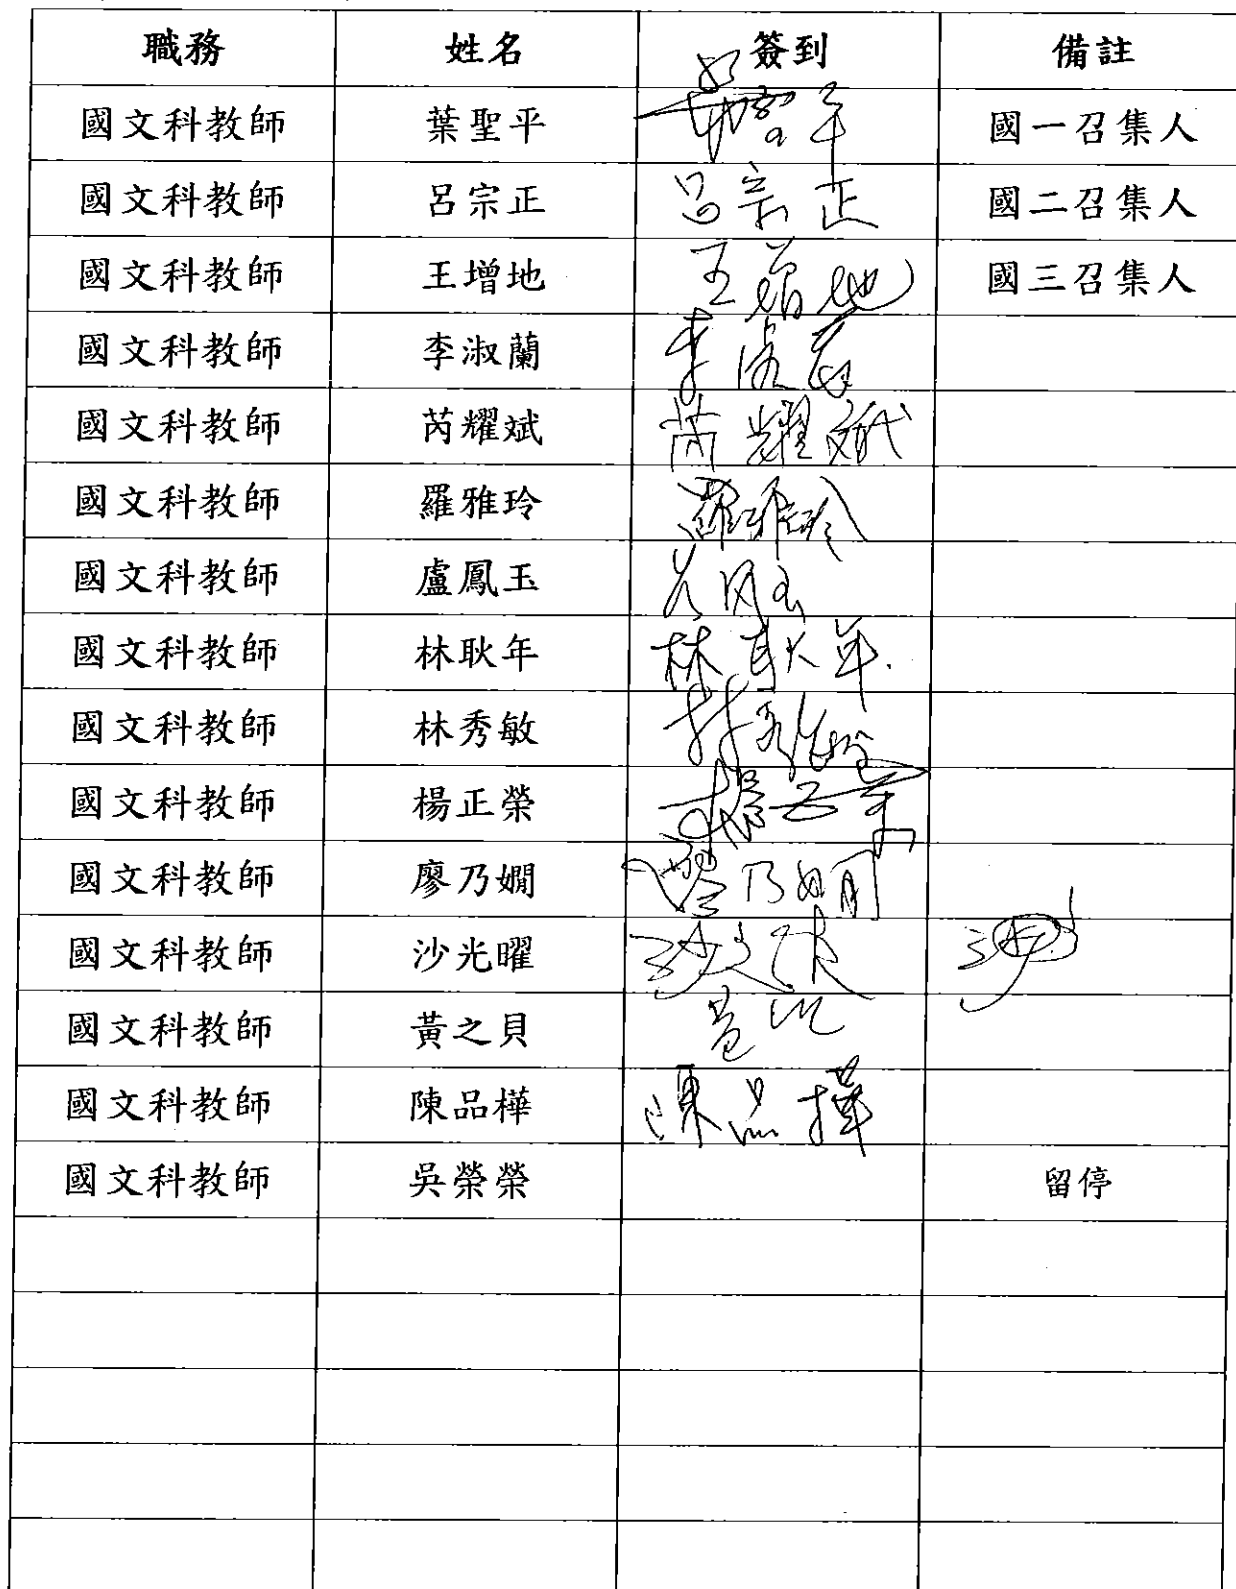 職務 姓名 簽到 備註
國文科教師 葉聖平 葉聖平 國一召集人
國文科教師 呂宗正 呂宗正 國二召集人
國文科教師 王增地 王增地 國三召集人
國文科教師 李淑蘭 李淑蘭
國文科教師 芮耀斌 芮耀斌
國文科教師 羅雅玲 羅雅玲
國文科教師 盧鳳玉
國文科教師 林耿年 林耿年
國文科教師 林秀敏 林秀敏
國文科教師 楊正榮 楊正榮
國文科教師 廖乃嫺 廖乃嫺
國文科教師 沙光曜 沙光
國文科教師 黃之貝
國文科教師 陳品樺 陳品樺
國文科教師 吳榮榮 留停